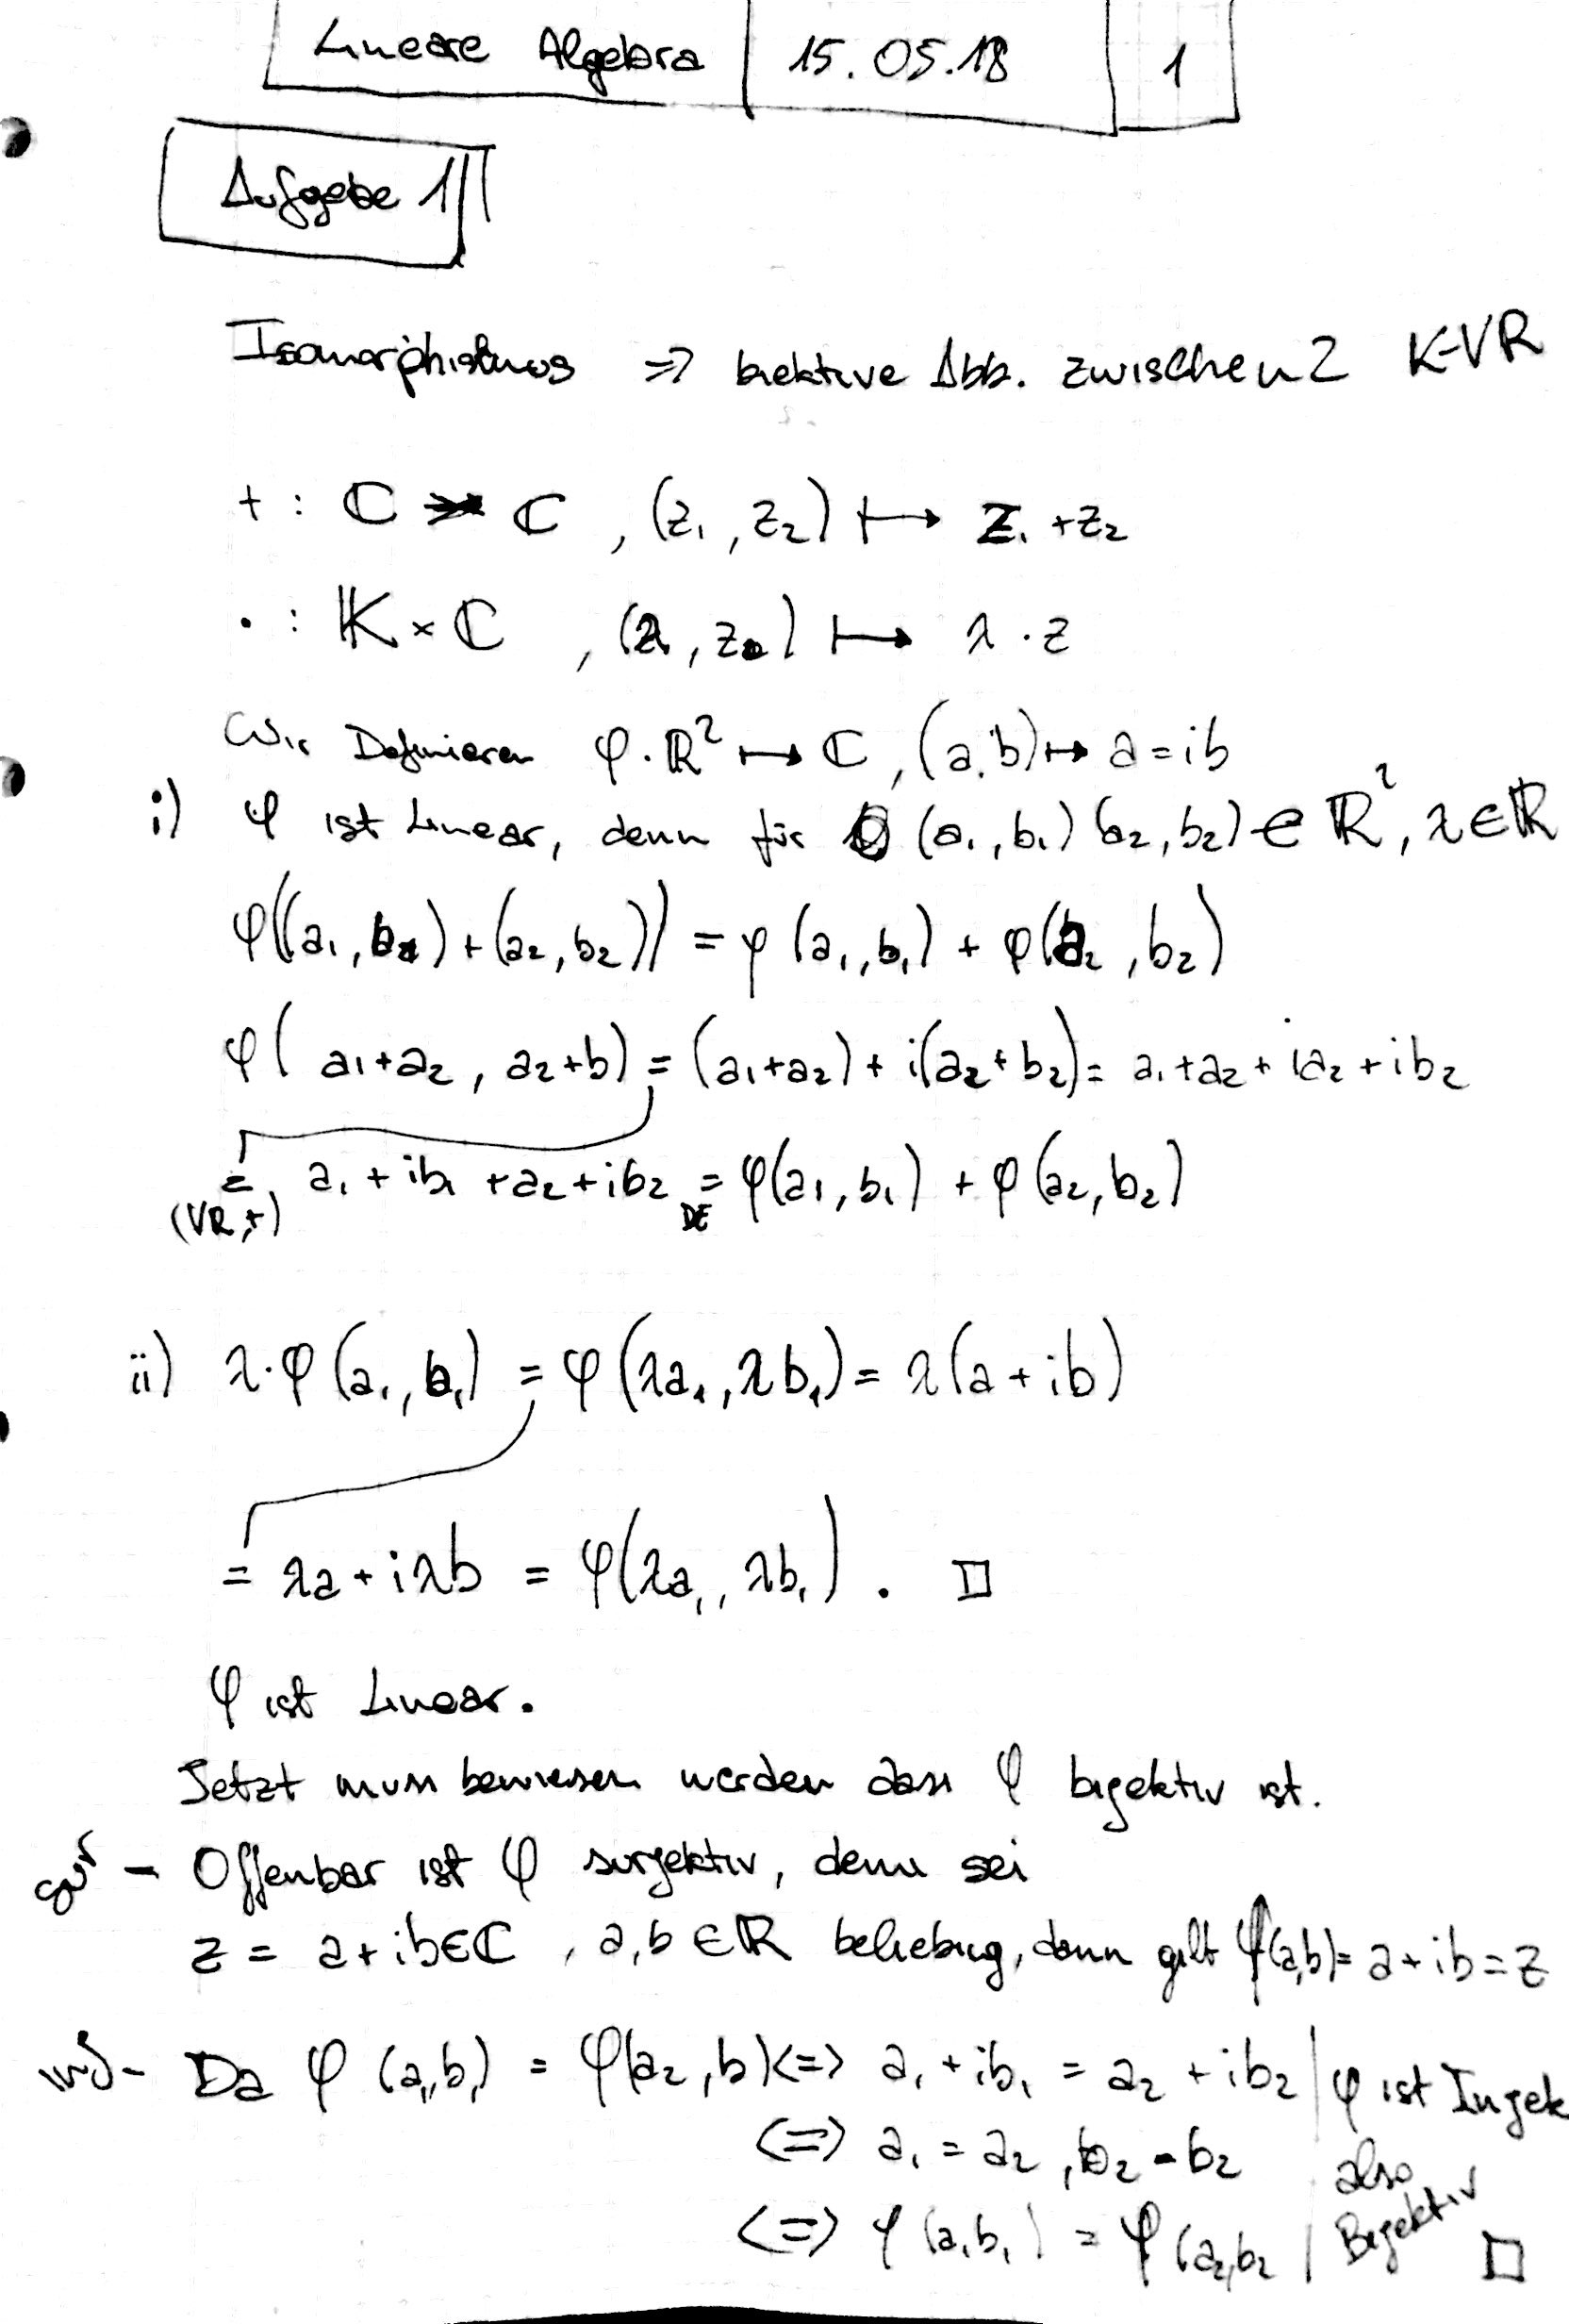 Lineare Algebra | 15.05.18 | 1
Aufgabe 1
Isomorphismus => bijektive Abb. zwischen 2 K-VR
+ : ℂ × ℂ , (z₁, z₂) ↦ z₁ + z₂
· : 𝕂 × ℂ , (λ, z) ↦ λ · z
Wir Definieren φ. ℝ² ↦ ℂ, (a,b) ↦ a = ib
i) φ ist Linear, denn für (a₁, b₁) (a₂, b₂) ∈ ℝ², λ ∈ ℝ
φ((a₁, b₁) + (a₂, b₂)) = φ (a₁, b₁) + φ(a₂, b₂)
φ( a₁+a₂, a₂+b) = (a₁+a₂) + i(a₂+b₂) = a₁+a₂ + ia₂ + ib₂
= a₁ + ib₁ + a₂ + ib₂ = φ(a₁, b₁) + φ(a₂, b₂)
(VR,+) DE
ii) λ·φ (a₁, b₁) = φ(λa₁, λb₁) = λ(a + ib)
= λa + iλb = φ(λa₁, λb₁). □
φ ist Linear.
Jetzt muss bewiesen werden dass φ bijektiv ist.
surj - Offenbar ist φ surjektiv, denn sei
z = a + ib ∈ ℂ , a,b ∈ ℝ beliebig, dann gilt φ(a,b) = a + ib = z
inj - Da φ (a₁,b₁) = φ(a₂, b) <=> a₁ + ib₁ = a₂ + ib₂ | φ ist Injek
<=> a₁ = a₂, b₂ = b₂ | also
<=> φ (a₁b₁) = φ (a₂,b₂ | Bijektiv □